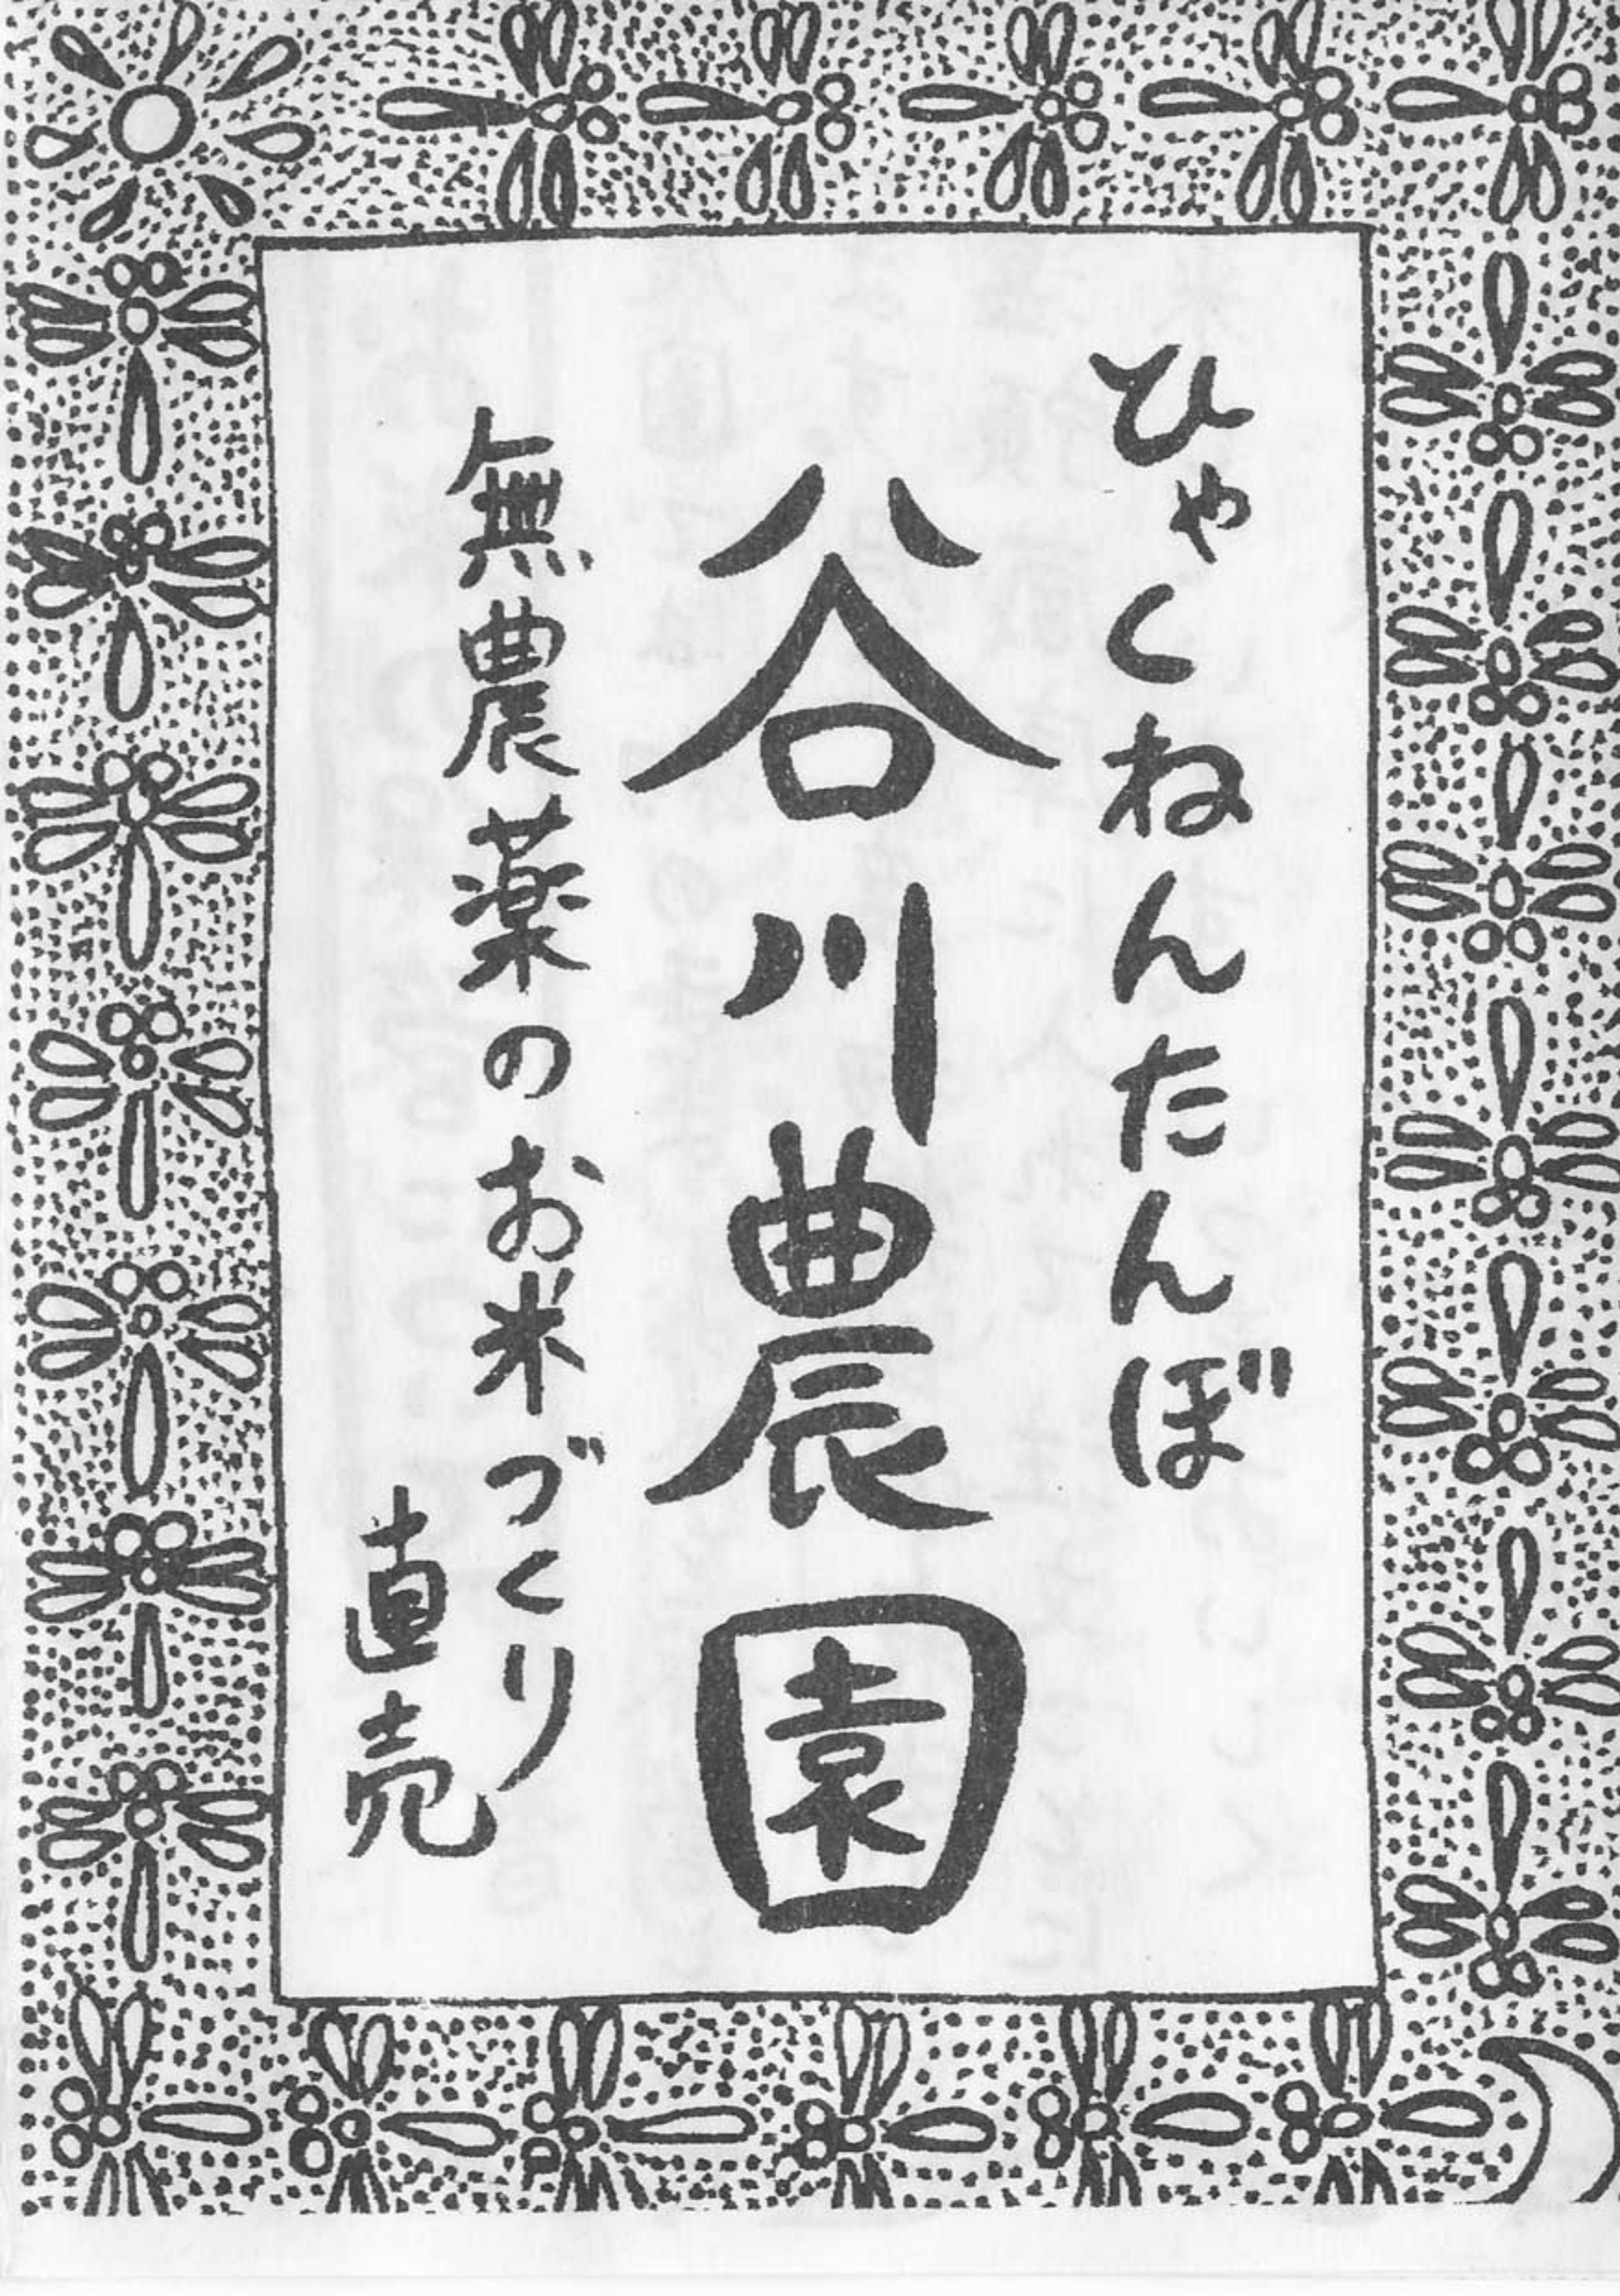 ひゃくねんたんぼ
谷川農園
無農薬のお米づくり
直売